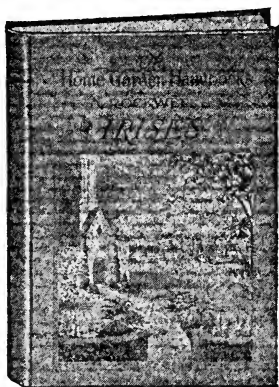 The
Home Garden Handbooks
F. ROCKWELL
IRISES